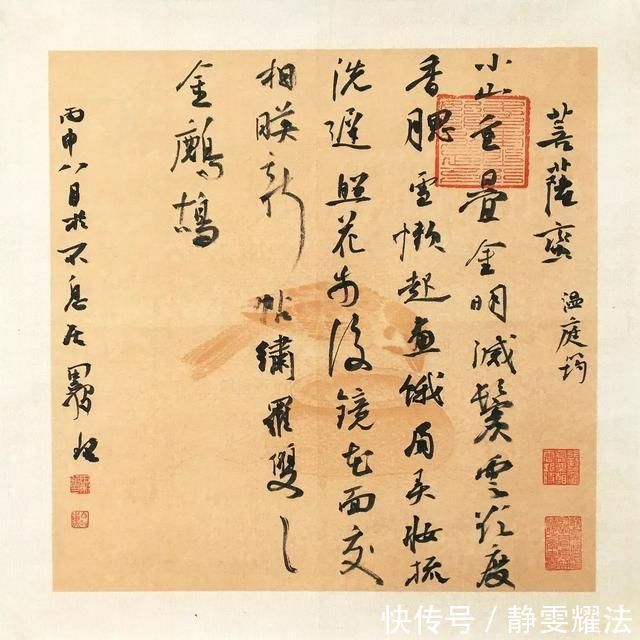 菩薩蠻 温庭筠
小山重疊金明滅鬢雲欲度
香腮雪懶起畫蛾眉弄妝梳
洗遲照花前後鏡花面交
相暎新帖繡羅雙々
金鷓鴣
丙申八月於不息居
快传号 / 静雯耀法